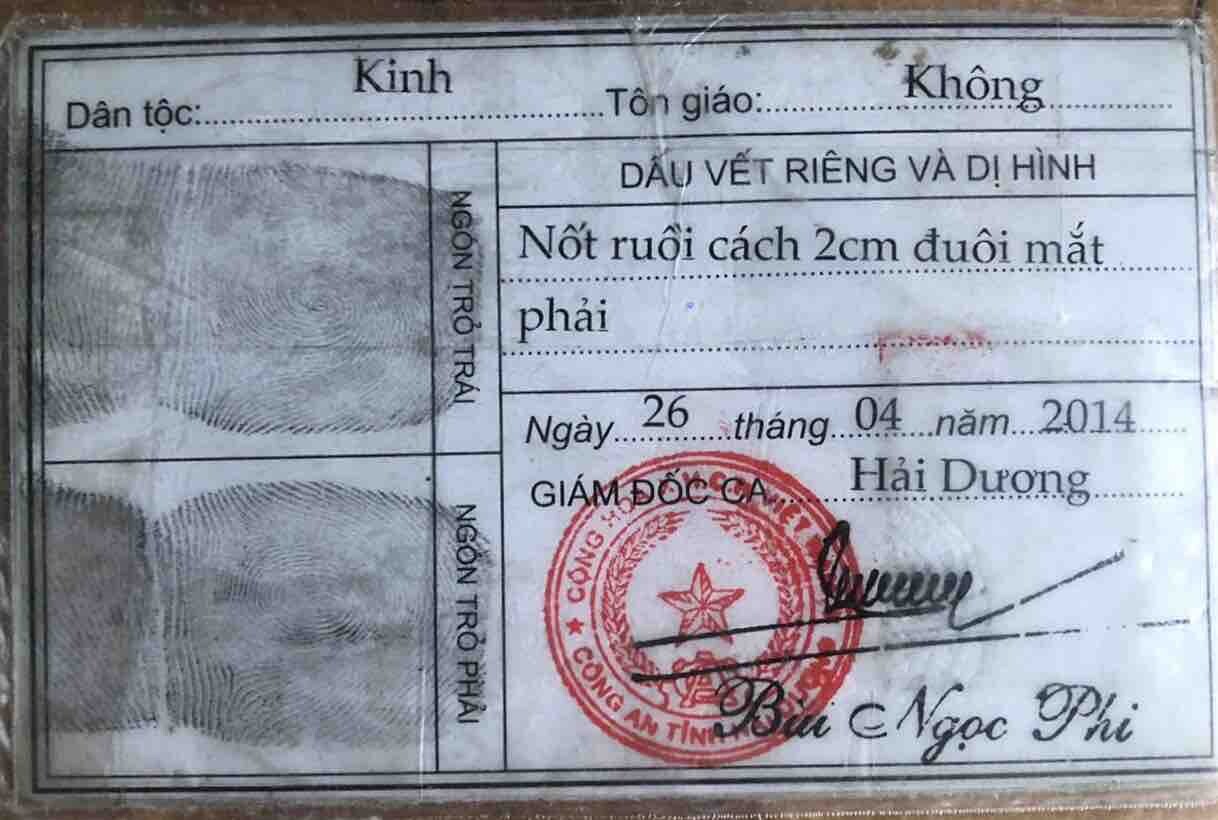 Dân tộc: Kinh Tôn giáo: Không
NGÓN TRỎ TRÁI
NGÓN TRỎ PHẢI
DẤU VẾT RIÊNG VÀ DỊ HÌNH
Nốt ruồi cách 2cm đuôi mắt
phải
Ngày 26 tháng 04 năm 2014
GIÁM ĐỐC CA Hải Dương
CỘNG HÒA
VIỆT
CÔNG AN TỈNH
Bùi Ngọc Phi